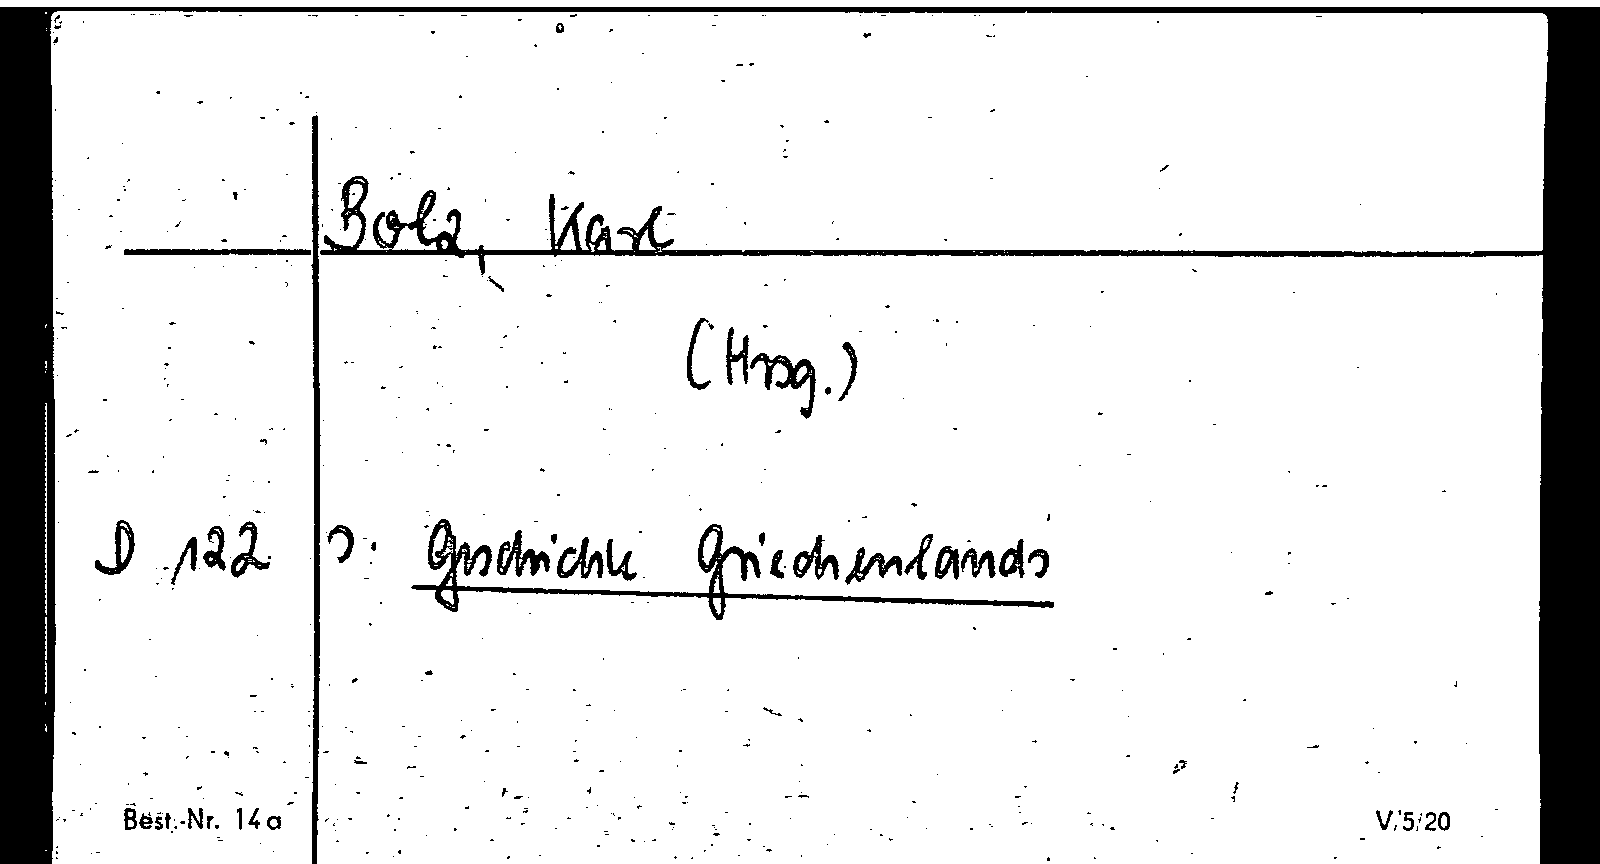 Bolz, Karl
(Hrsg.)
D 122 s. Geschichte Griechenlands
Best.-Nr. 14a V/5/20